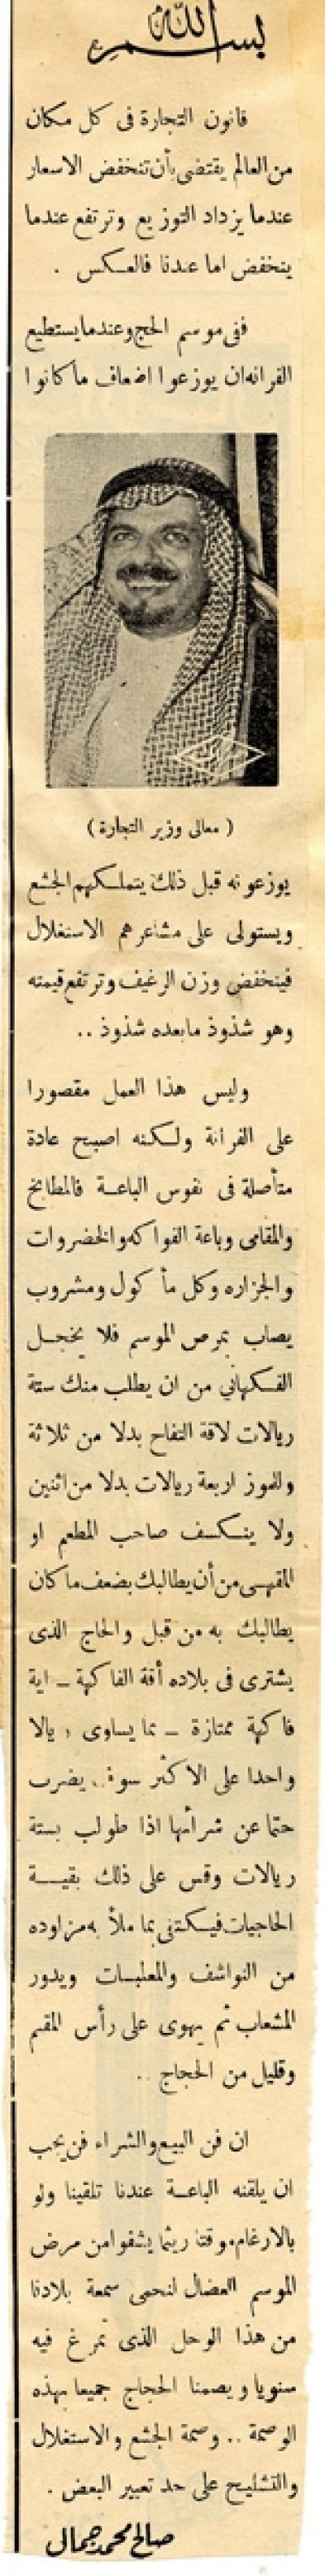 بسم الله
قانون التجارة فى كل مكان
من العالم يقتضى بأن تنخفض الاسعار
عندما يزداد التوزيع وترتفع عندما
ينخفض اما عندنا فالعكس .
ففى موسم الحج وعندما يستطيع
الفرانه ان يوزعوا اضعاف ما كانوا
( معالى وزير التجارة )
يوزعونه قبل ذلك يتملكهم الجشع
ويستولى على مشاعرهم الاستغلال
فينخفض وزن الرغيف وترتفع قيمته
وهو شذوذ ما بعده شذوذ ..
وليس هذا العمل مقصورا
على الفرانة ولكنه اصبح عادة
متأصلة فى نفوس الباعة فالمطابخ
والمقاهى وباعة الفواكه والخضروات
والجزاره وكل مأكول ومشروب
يصاب بمرض الموسم فلا يخجل
الفكهاني من ان يطلب منك ستة
ريالات لاقة التفاح بدلا من ثلاثة
وللموز اربعة ريالات بدلا من اثنين
ولا ينكسف صاحب المطعم او
المقهى من أن يطالبك بضعف ما كان
يطالبك به من قبل والحاج الذى
يشترى فى بلاده أقة الفاكهة ـ اية
فاكهة ممتازة ـ بما يساوى ريالا
واحدا على الاكثر سوف يضرب
حتما عن شرائها اذا طولب بستة
ريالات وقس على ذلك بقيـــة
الحاجيات فيكتفى بما ملأ به مزاوده
من النواشف والمعلبات ويدور
المشعاب ثم يهوى على رأس المقيم
وقليل من الحجاج ..
ان فن البيع والشراء فن يجب
ان يلقنه الباعة عندنا تلقينا ولو
بالارغام موقتا ريثما يشفوا من مرض
الموسم العضال لنحمى سمعة بلادنا
من هذا الوحل الذى تمرغ فيه
سنويا ويصمنا الحجاج جميعا بهذه
الوصمة .. وصمة الجشع والاستغلال
والتشليح على حد تعبير البعض .
صالح محمد جمال